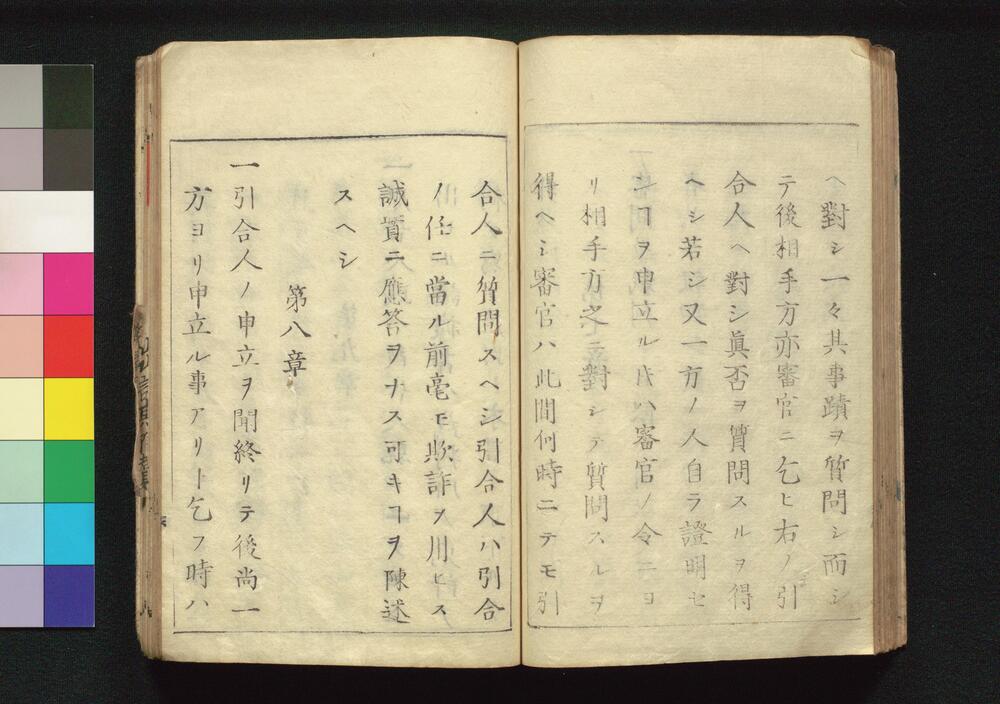 ヘ對シ一々其事蹟ヲ質問シ而シ
テ後相手方亦審官ニ乞ヒ右ノ引
合人ヘ對シ眞否ヲ質問スルヲ得
ヘシ若シ又一方ノ人自ラ證明セ
ンヿヲ申立ルトキハ審官ノ令ニヨ
リ相手方之ニ對シテ質問スルヲ
得ヘシ審官ハ此間何時ニテモ引
合人ニ質問スヘシ引合人ハ引合
ノ任ニ當ル前毫モ欺詐ヲ用ヒス
誠實ニ應答ヲナス可キヿヲ陳述
スヘシ
第八章
一引合人ノ申立ヲ聞終リテ後尚一
方ヨリ申立ル事アリト乞フ時ハ